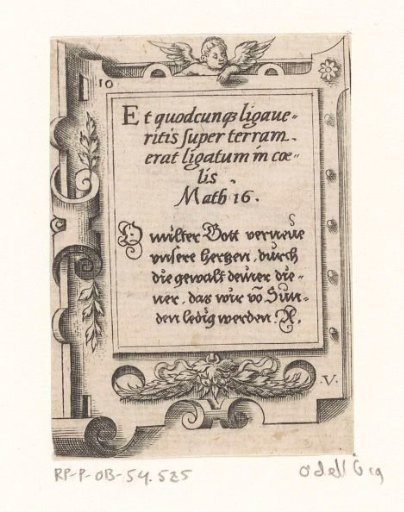 10
Et quodcunqs ligaue-
ritis super terram.
erat ligatum in cœ-
lis.
Math 16.
O milter Gott verneue
vnsere hertzen, durch
die gewalt deiner die-
ner, das wir võ Sun-
den ledig werden. A.
.V.
RP-P-OB-54.525